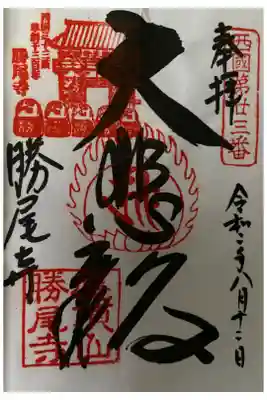 西國第廿三番
奉拝
令和二年八月十二日
大悲殿
勝尾寺
勝尾寺
山
勝尾寺